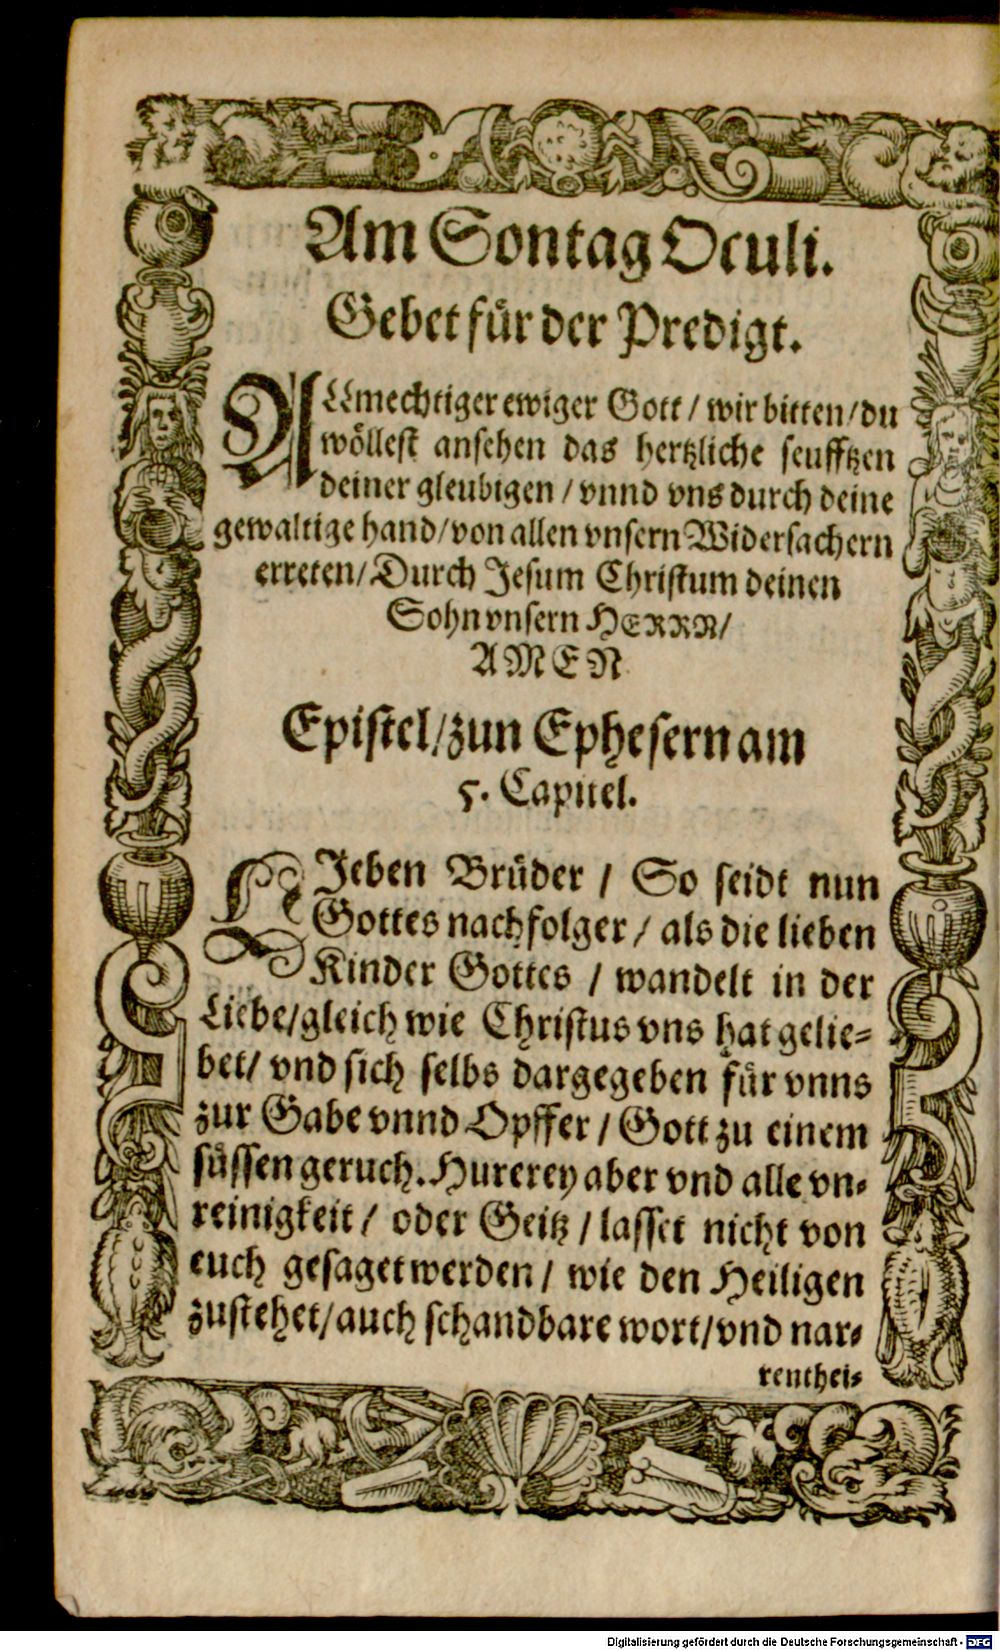 Am Sontag Oculi.
Gebet für der Predigt.
ALlmechtiger ewiger Gott / wir bitten / du
wöllest ansehen das hertzliche seufftzen
deiner gleubigen / vnnd vns durch deine
gewaltige hand / von allen vnsern Widersachern
erreten / Durch Jesum Christum deinen
Sohn vnsern HERRN /
AMEN
Epistel / zun Ephesern am
5. Capitel.
LJeben Brüder / So seidt nun
Gottes nachfolger / als die lieben
Kinder Gottes / wandelt in der
Liebe / gleich wie Christus vns hat gelie=
bet / vnd sich selbs dargegeben für vnns
zur Gabe vnnd Opffer / Gott zu einem
süssen geruch. Hurerey aber vnd alle vn=
reinigkeit / oder Geitz / lasset nicht von
euch gesaget werden / wie den Heiligen
zustehet / auch schandbare wort / vnd nar=
renthei=
Digitalisierung gefördert durch die Deutsche Forschungsgemeinschaft - DFG